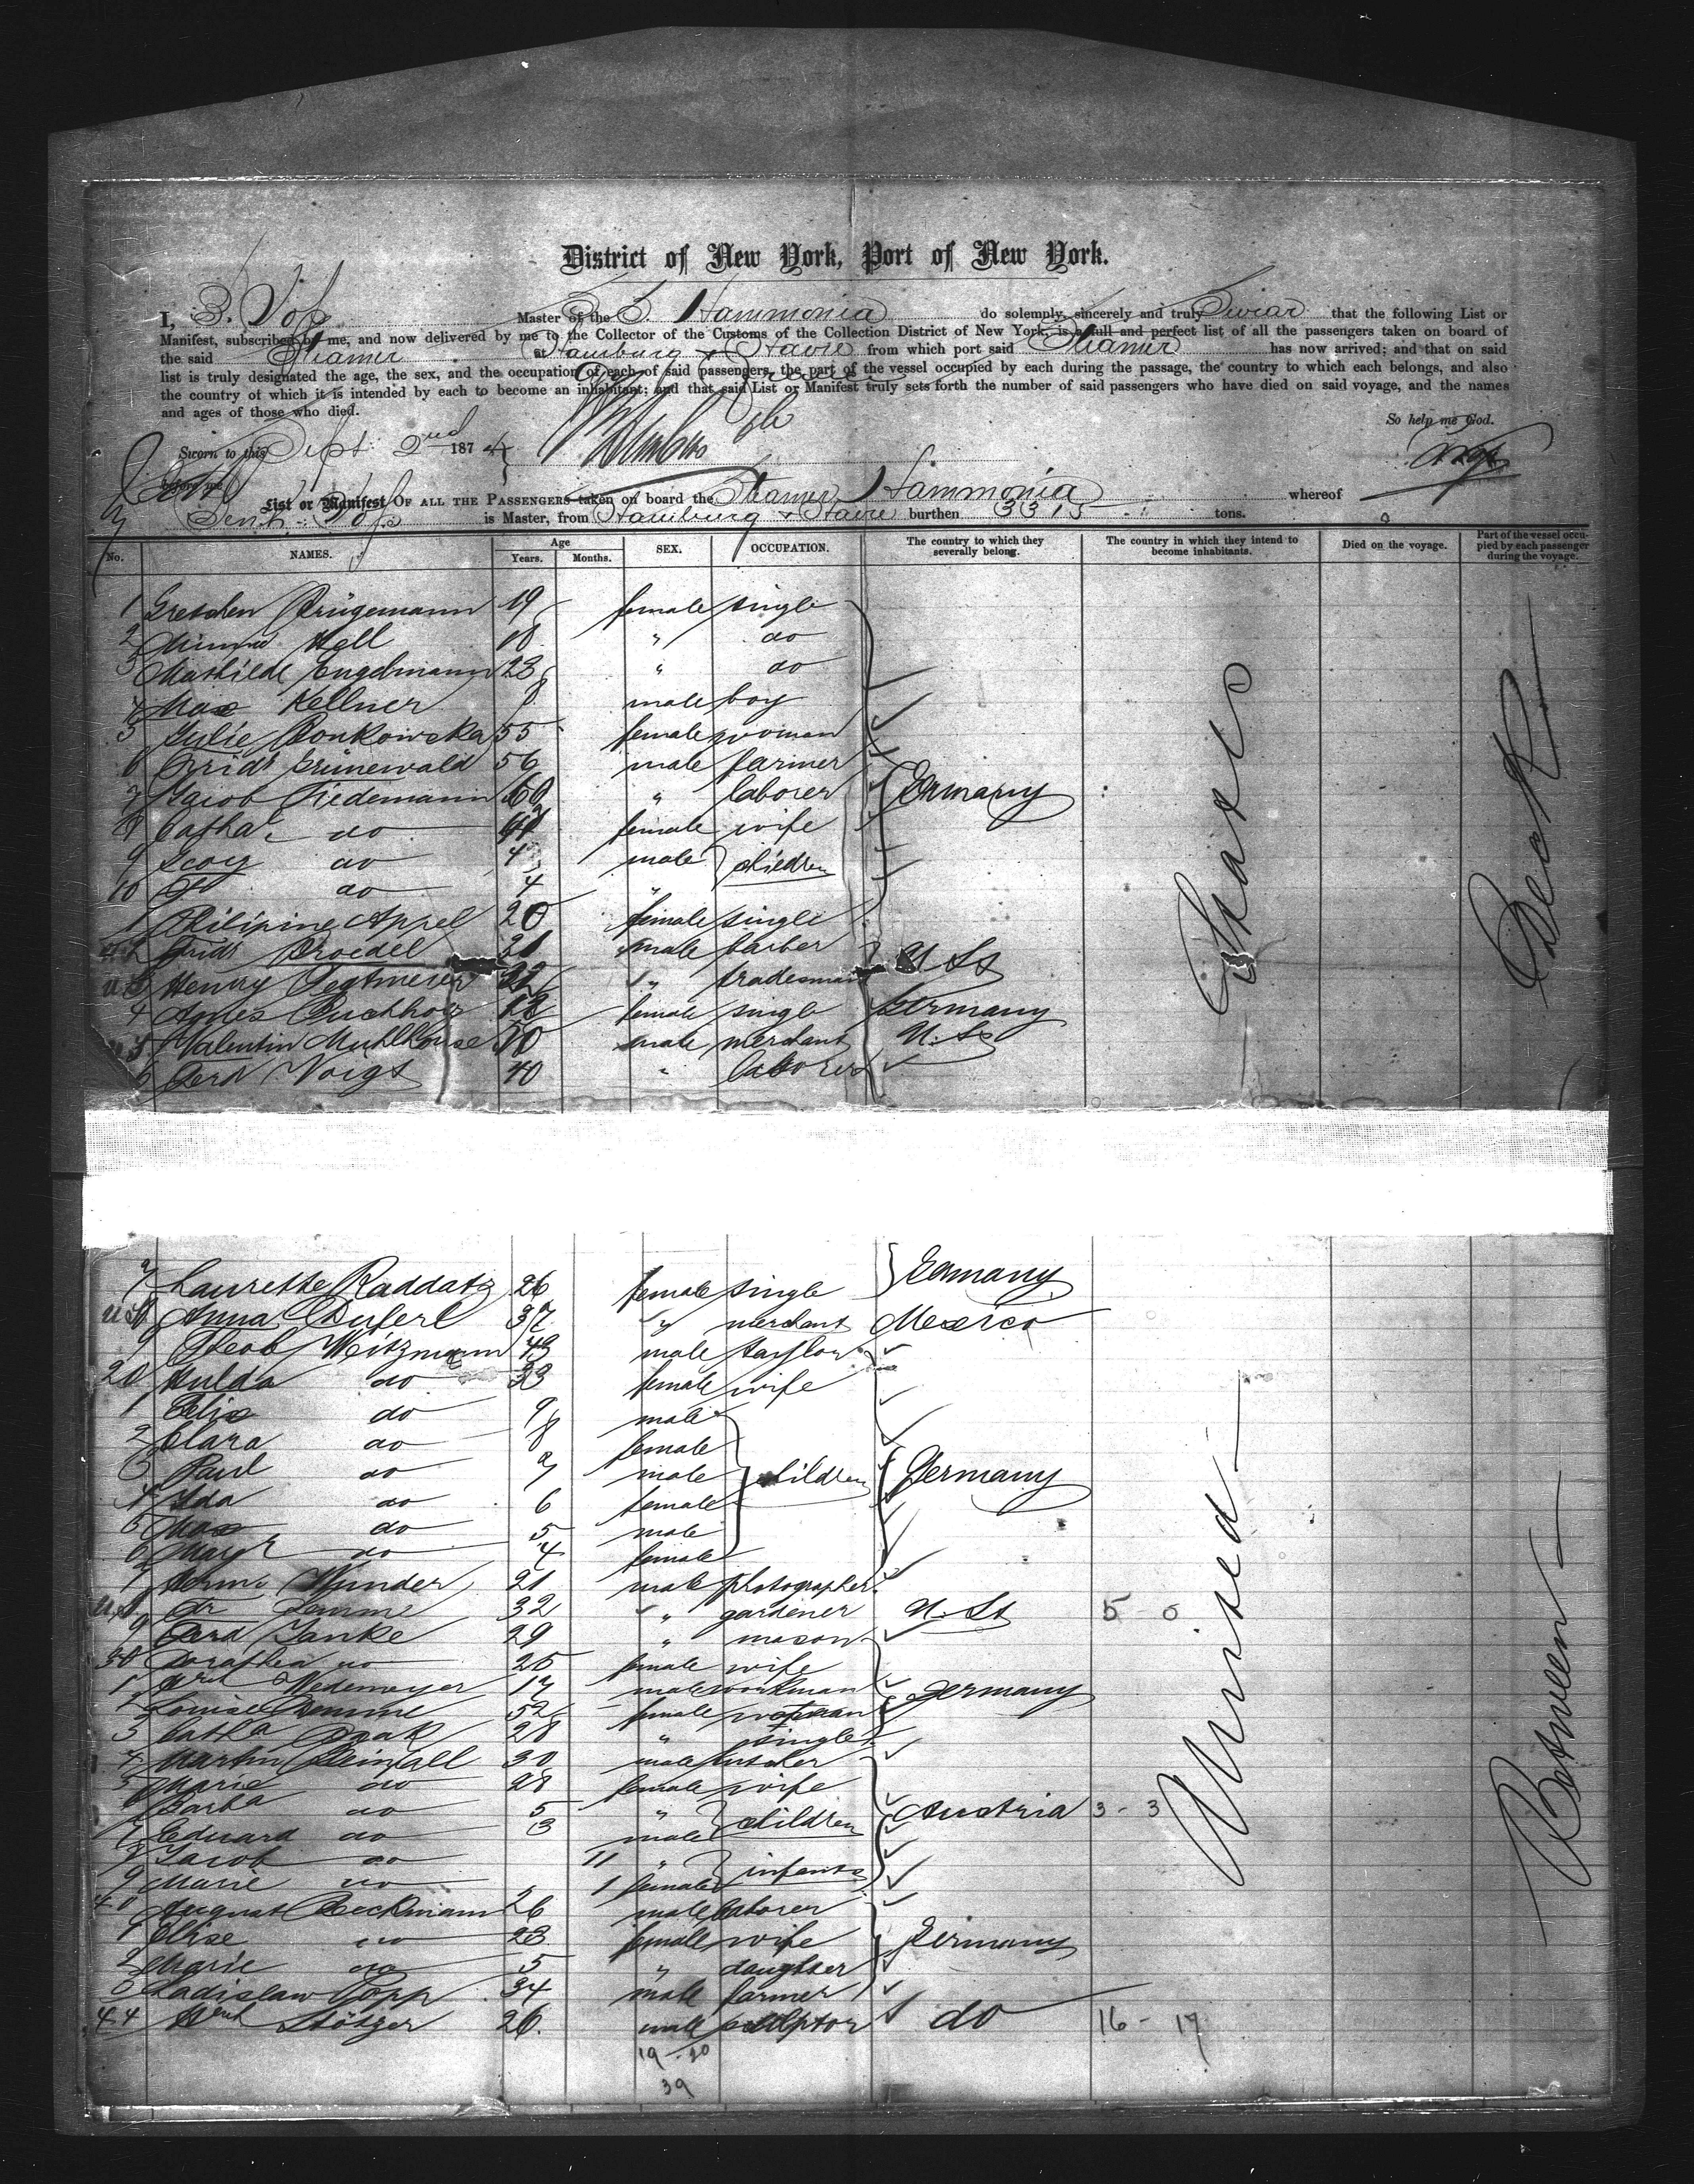 District of New York, Port of New York.
I, B. Voss Master of the S. S. Hammonia do solemnly, sincerely and truly Swear that the following List or
Manifest, subscribed by me, and now delivered by me to the Collector of the Customs of the Collection District of New York, is a full and perfect list of all the passengers taken on board of
the said Steamer at Hamburg & Havre from which port said Steamer has now arrived; and that on said
list is truly designated the age, the sex, and the occupation of each of said passengers, the part of the vessel occupied by each during the passage, the country to which each belongs, and also
the country of which it is intended by each to become an inhabitant; and that said List or Manifest truly sets forth the number of said passengers who have died on said voyage, and the names
and ages of those who died.
So help me God.
Sworn to this Sept. 2nd 1874
before me
List or Manifest OF ALL THE PASSENGERS taken on board the Steamer Hammonia whereof
is Master, from Hamburg & Havre burthen 3315 tons.
No. NAMES. Age Years. Months. SEX. OCCUPATION. The country to which they severally belong. The country in which they intend to become inhabitants. Died on the voyage. Part of the vessel occupied by each passenger during the voyage.
1 Gretchen Brügemann 19 female single
2 Hell 18 " do
3 Mathilde Engelmann 23 " do
4 Max Kellner 8 male boy
5 Julie 55 female woman
6 Fridr Grünewald 56 male farmer
7 Jacob Tiedemann 60 " laborer Germany
8 Catha do female wife
9 do 4 male children
10 do 4 "
1 Philipine Appel 20 female single
2 Fridr 21 male barber U. St
3 Henry Segtmeier 22 " tradesman
4 Agnes Buchholz 18 female single Germany
5 Valentin Muhlhouse 50 male merchant U. St
6 Ferd Voigt 40 " laborer
States
Deck
7 Laurette Raddatz 26 female single Germany
U.S. 8 Anna 37 " merchant Mexico
9 Weitzmann 43 male taylor
20 Hulda do 33 female wife
1 Felix do 9 male
2 Clara do 8 female
3 Paul do 7 male children Germany
4 Ida do 6 female
5 Max do 5 male
6 do 4 female
7 Herm. Wunder 21 male photographer
U.S. 32 " gardener U. St 5 - 0
9 Ferd Janke 29 " mason
30 Dorothea do 25 female wife
1 Wedemeyer 17 male workman Germany
2 Louise 52 female woman
3 Catha 28 " single
4 Martin 30 male
5 Marie do 28 female wife
6 Barba do 5 " children Austria 3 - 3
7 Eduard do 3 male
8 Jacob do 11 " infants
9 Marie do 1 female
40 August Beckmann 26 male laborer
1 Elise do 23 female wife Germany
2 Marie do 5 " daughter
3 Ladislaw Popp 34 male farmer
44 Stötzer 26 male sculptor do 16 - 17
19 - 20
39
United
Between